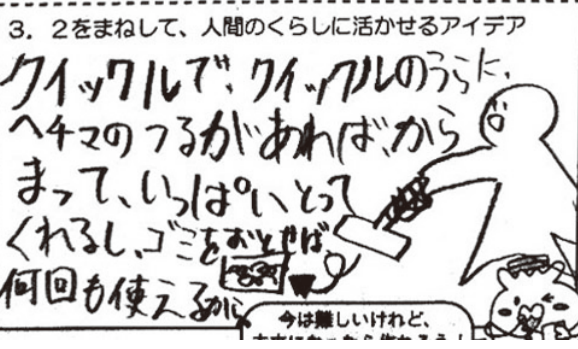 3. 2をまねして、人間のくらしに活かせるアイデア
クイックルで、クイックルのうらに、
ヘチマのつるがあれば、から
まって、いっぱいとって
くれるし、ゴミをおとせば、
何回も使えるから。
今は難しいけれど、